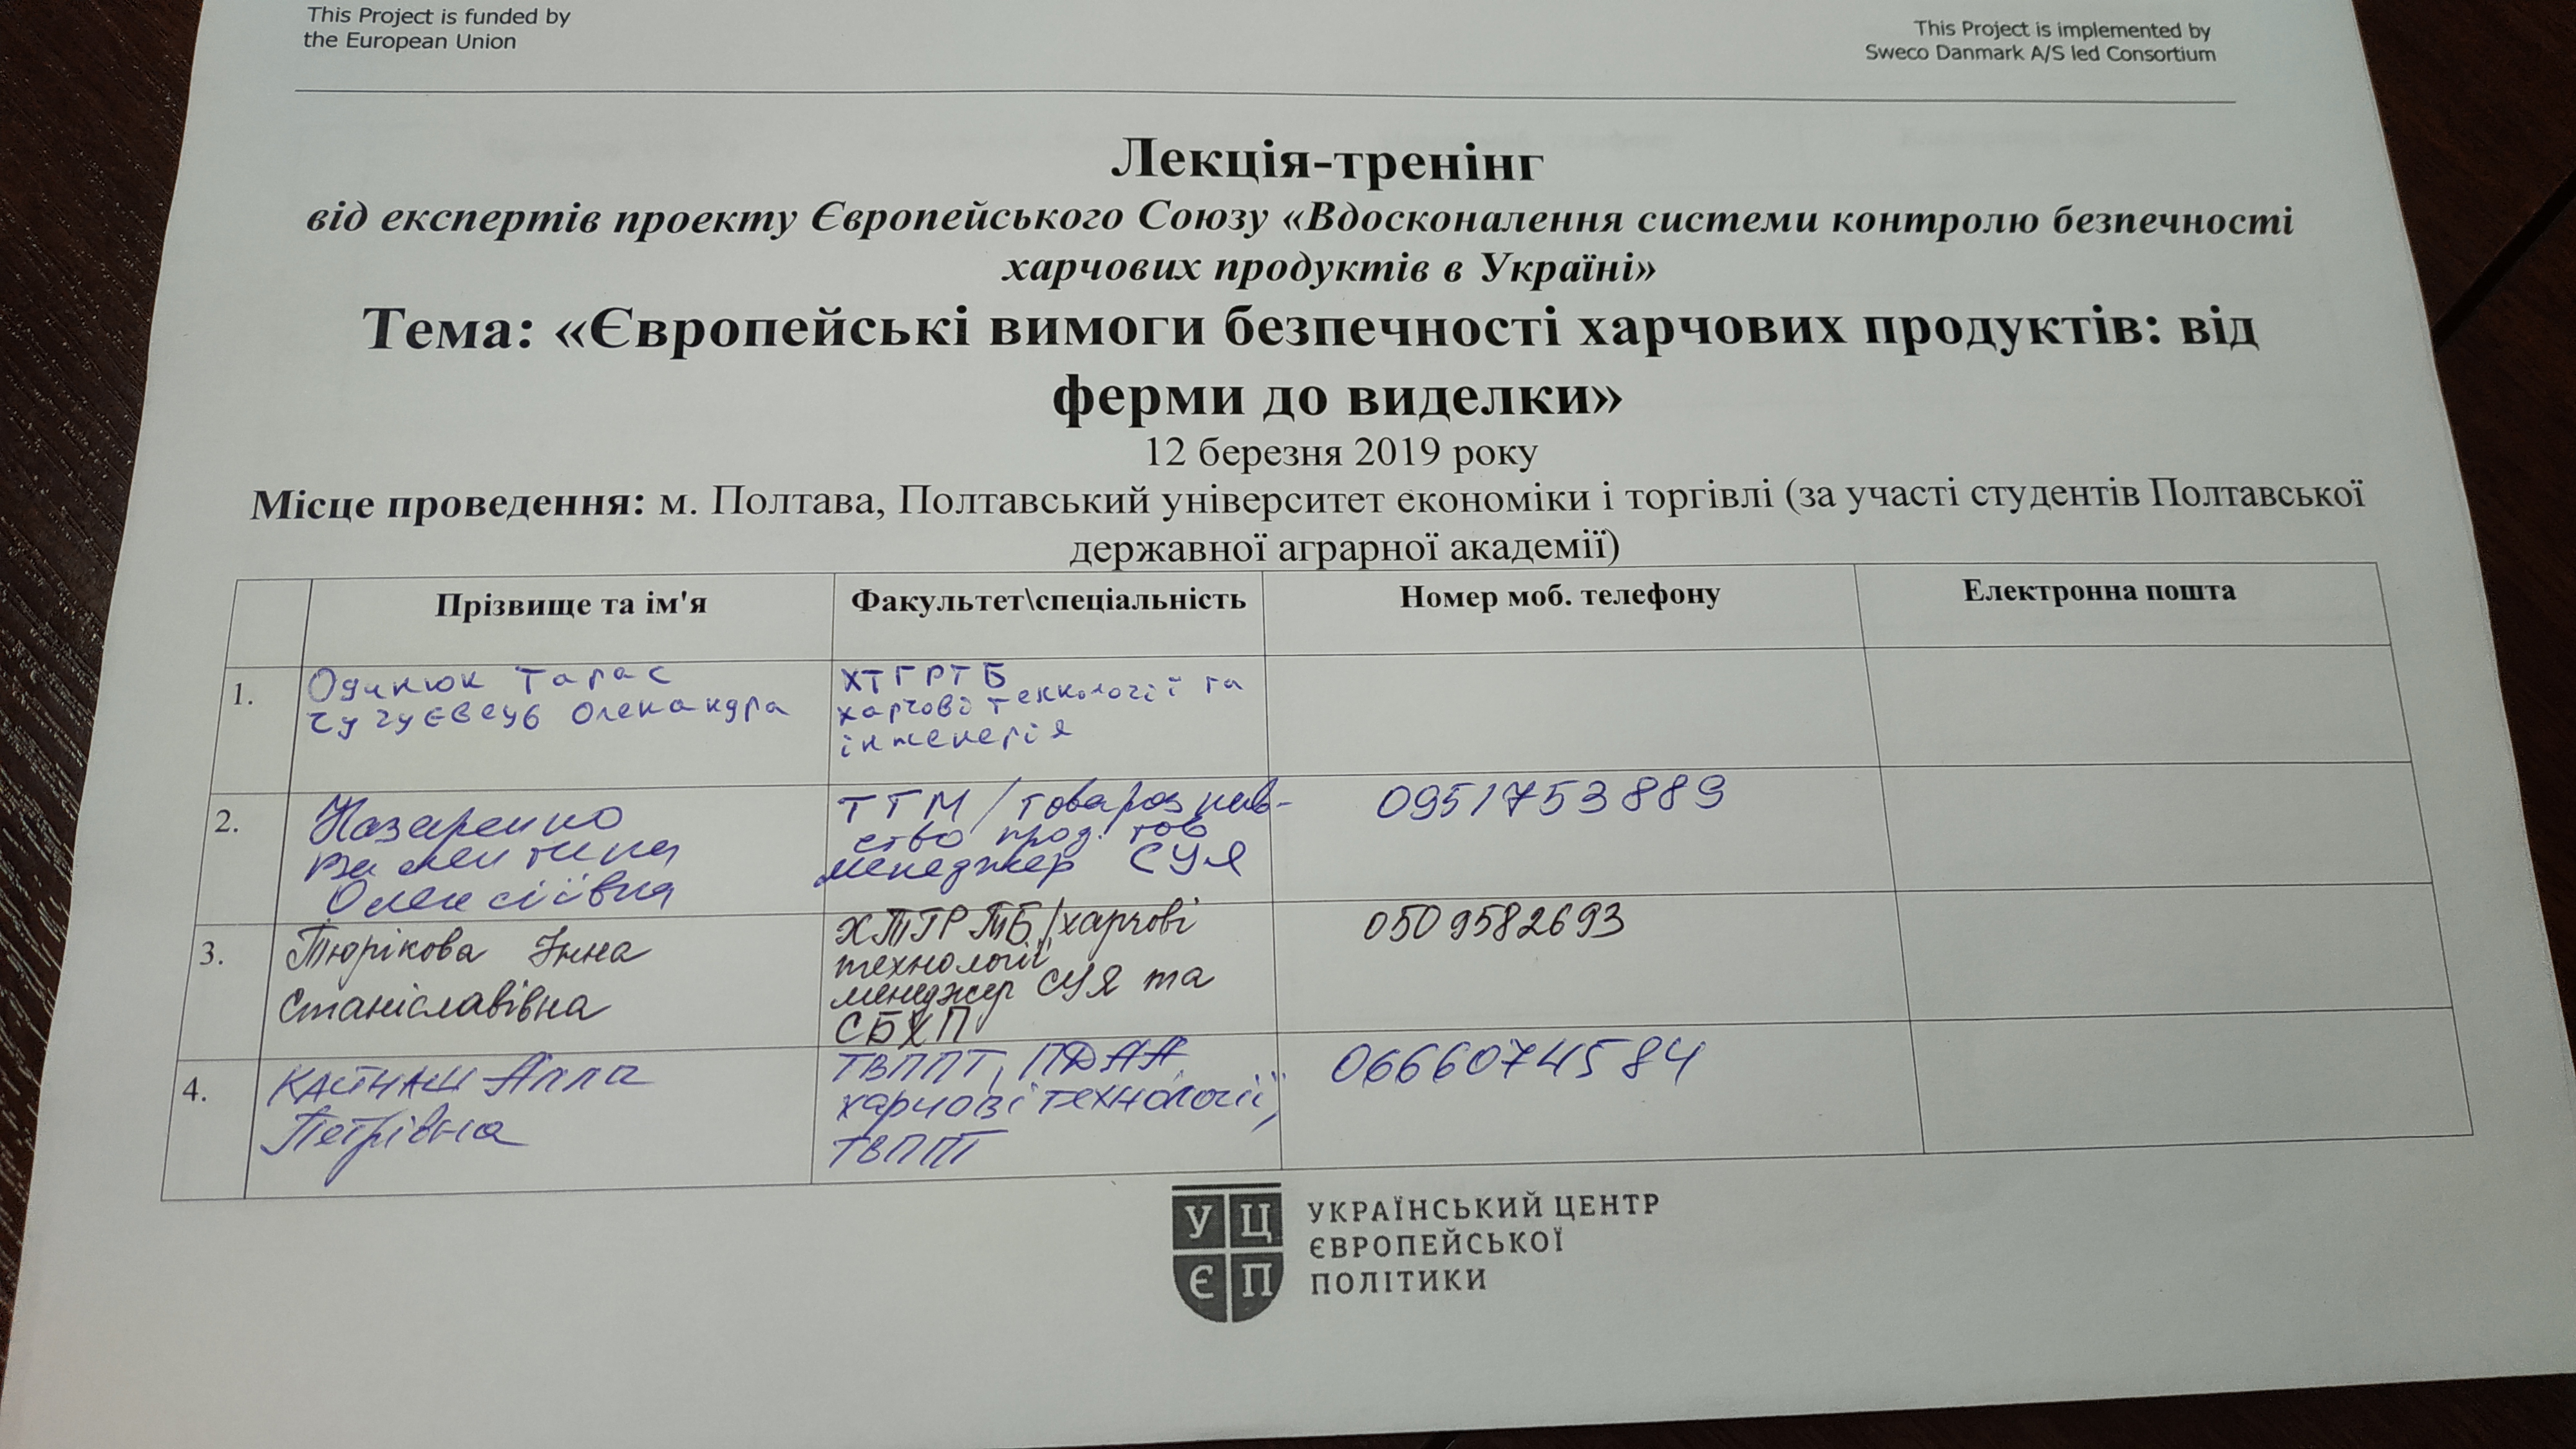 This Project is funded by
the European Union
This Project is implemented by
Sweco Danmark A/S led Consortium
Лекція-тренінг
від експертів проекту Європейського Союзу «Вдосконалення системи контролю безпечності
харчових продуктів в Україні»
Тема: «Європейські вимоги безпечності харчових продуктів: від
ферми до виделки»
12 березня 2019 року
Місце проведення: м. Полтава, Полтавський університет економіки і торгівлі (за участі студентів Полтавської
державної аграрної академії)
Прізвище та ім'я
Факультет\спеціальність
Номер моб. телефону
Електронна пошта
1.
Одинюк Тарас
Олександра
ХТГРТБ
харчові технології та
інженерія
2.
Назаренко
Валентина
Олексіївна
ТТМ/товарознав-
ство прод. тов
менеджер СУЯ
0951753889
3.
Тюрікова Інна
Станіславівна
ХТГРТБ/харчові
технології
менеджер СУЯ та
СБХП
0509582693
4.
Кайнаш Алла
Петрівна
ТВППТ, ПДАА
харчові технології,
ТВППТ
0666074584
УЦ
ЄП
УКРАЇНСЬКИЙ ЦЕНТР
ЄВРОПЕЙСЬКОЇ
ПОЛІТИКИ